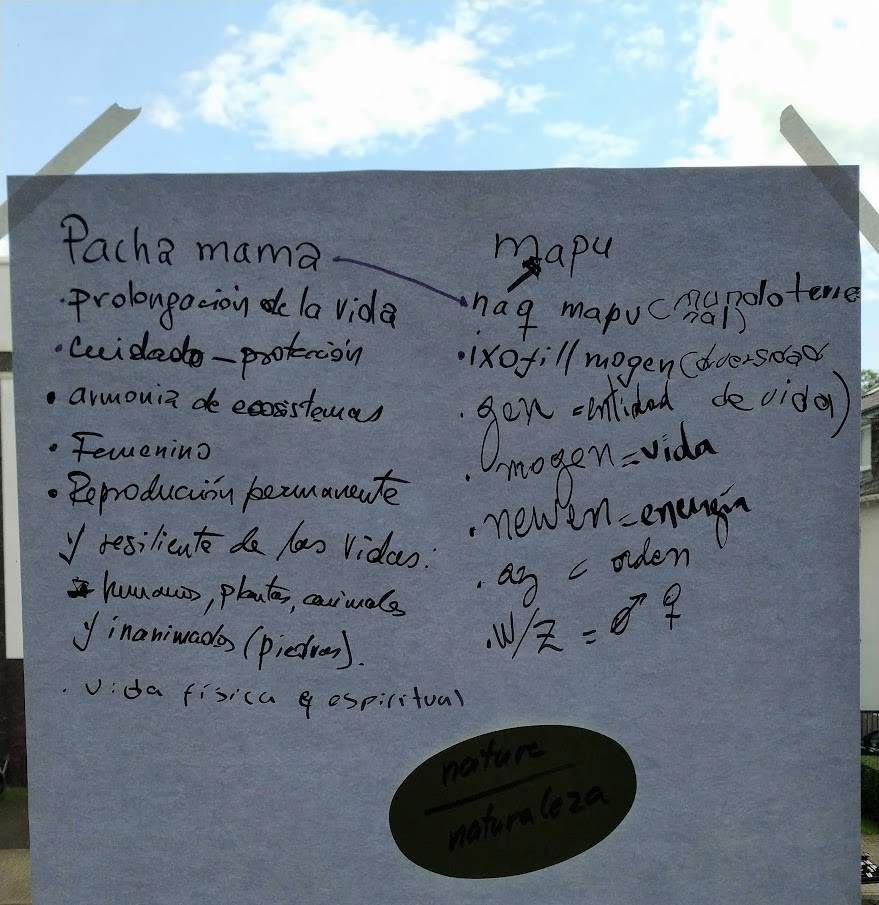 Pacha mama
· prolongación de la vida
· cuidado – protección
• armonia de ecosistemas
• Femenino
• Reprodución permanente
y resiliente de las vidas:
humanos, plantas, animales
y inanimados (piedras).
· vida física y espiritual
mapu
naq mapu (mundo terre
nal)
• ixofill mogen (diversidad
de vida)
· gen = entidad
· mogen = vida
· newen = energía
· az = orden
· W/Z = ♂ ♀
nature
naturaleza